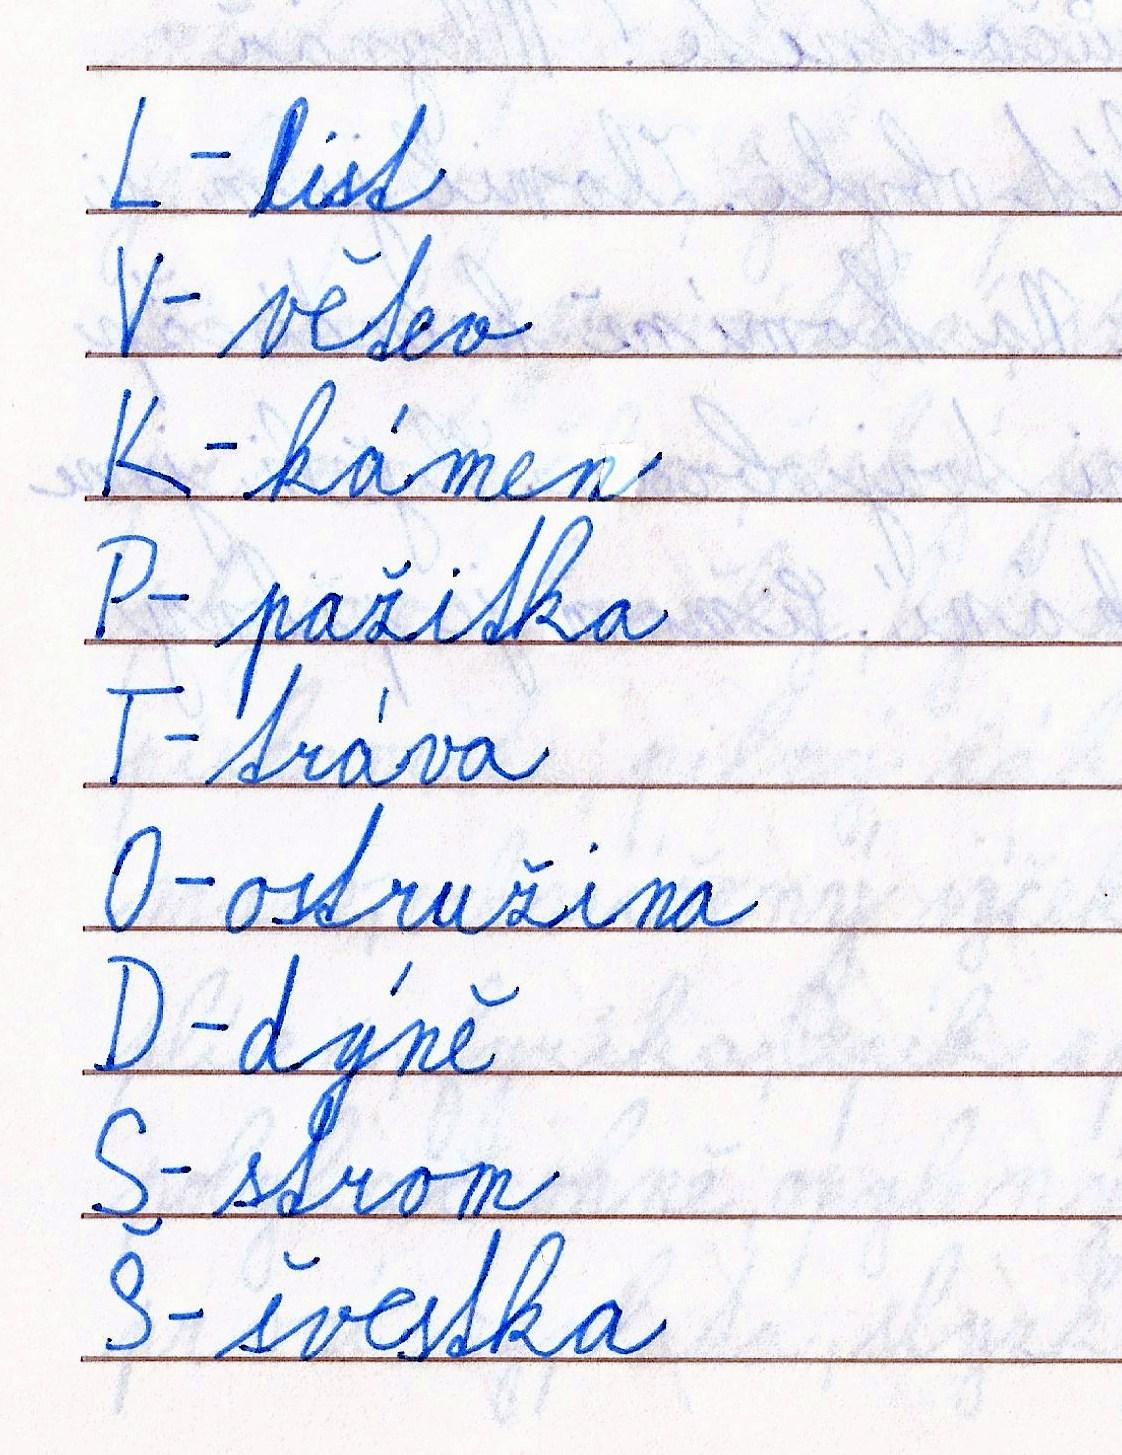 L - list
V - větev
K - kámen
P - pažitka
T - tráva
O - ostružina
D - dýně
S - strom
Š - švestka